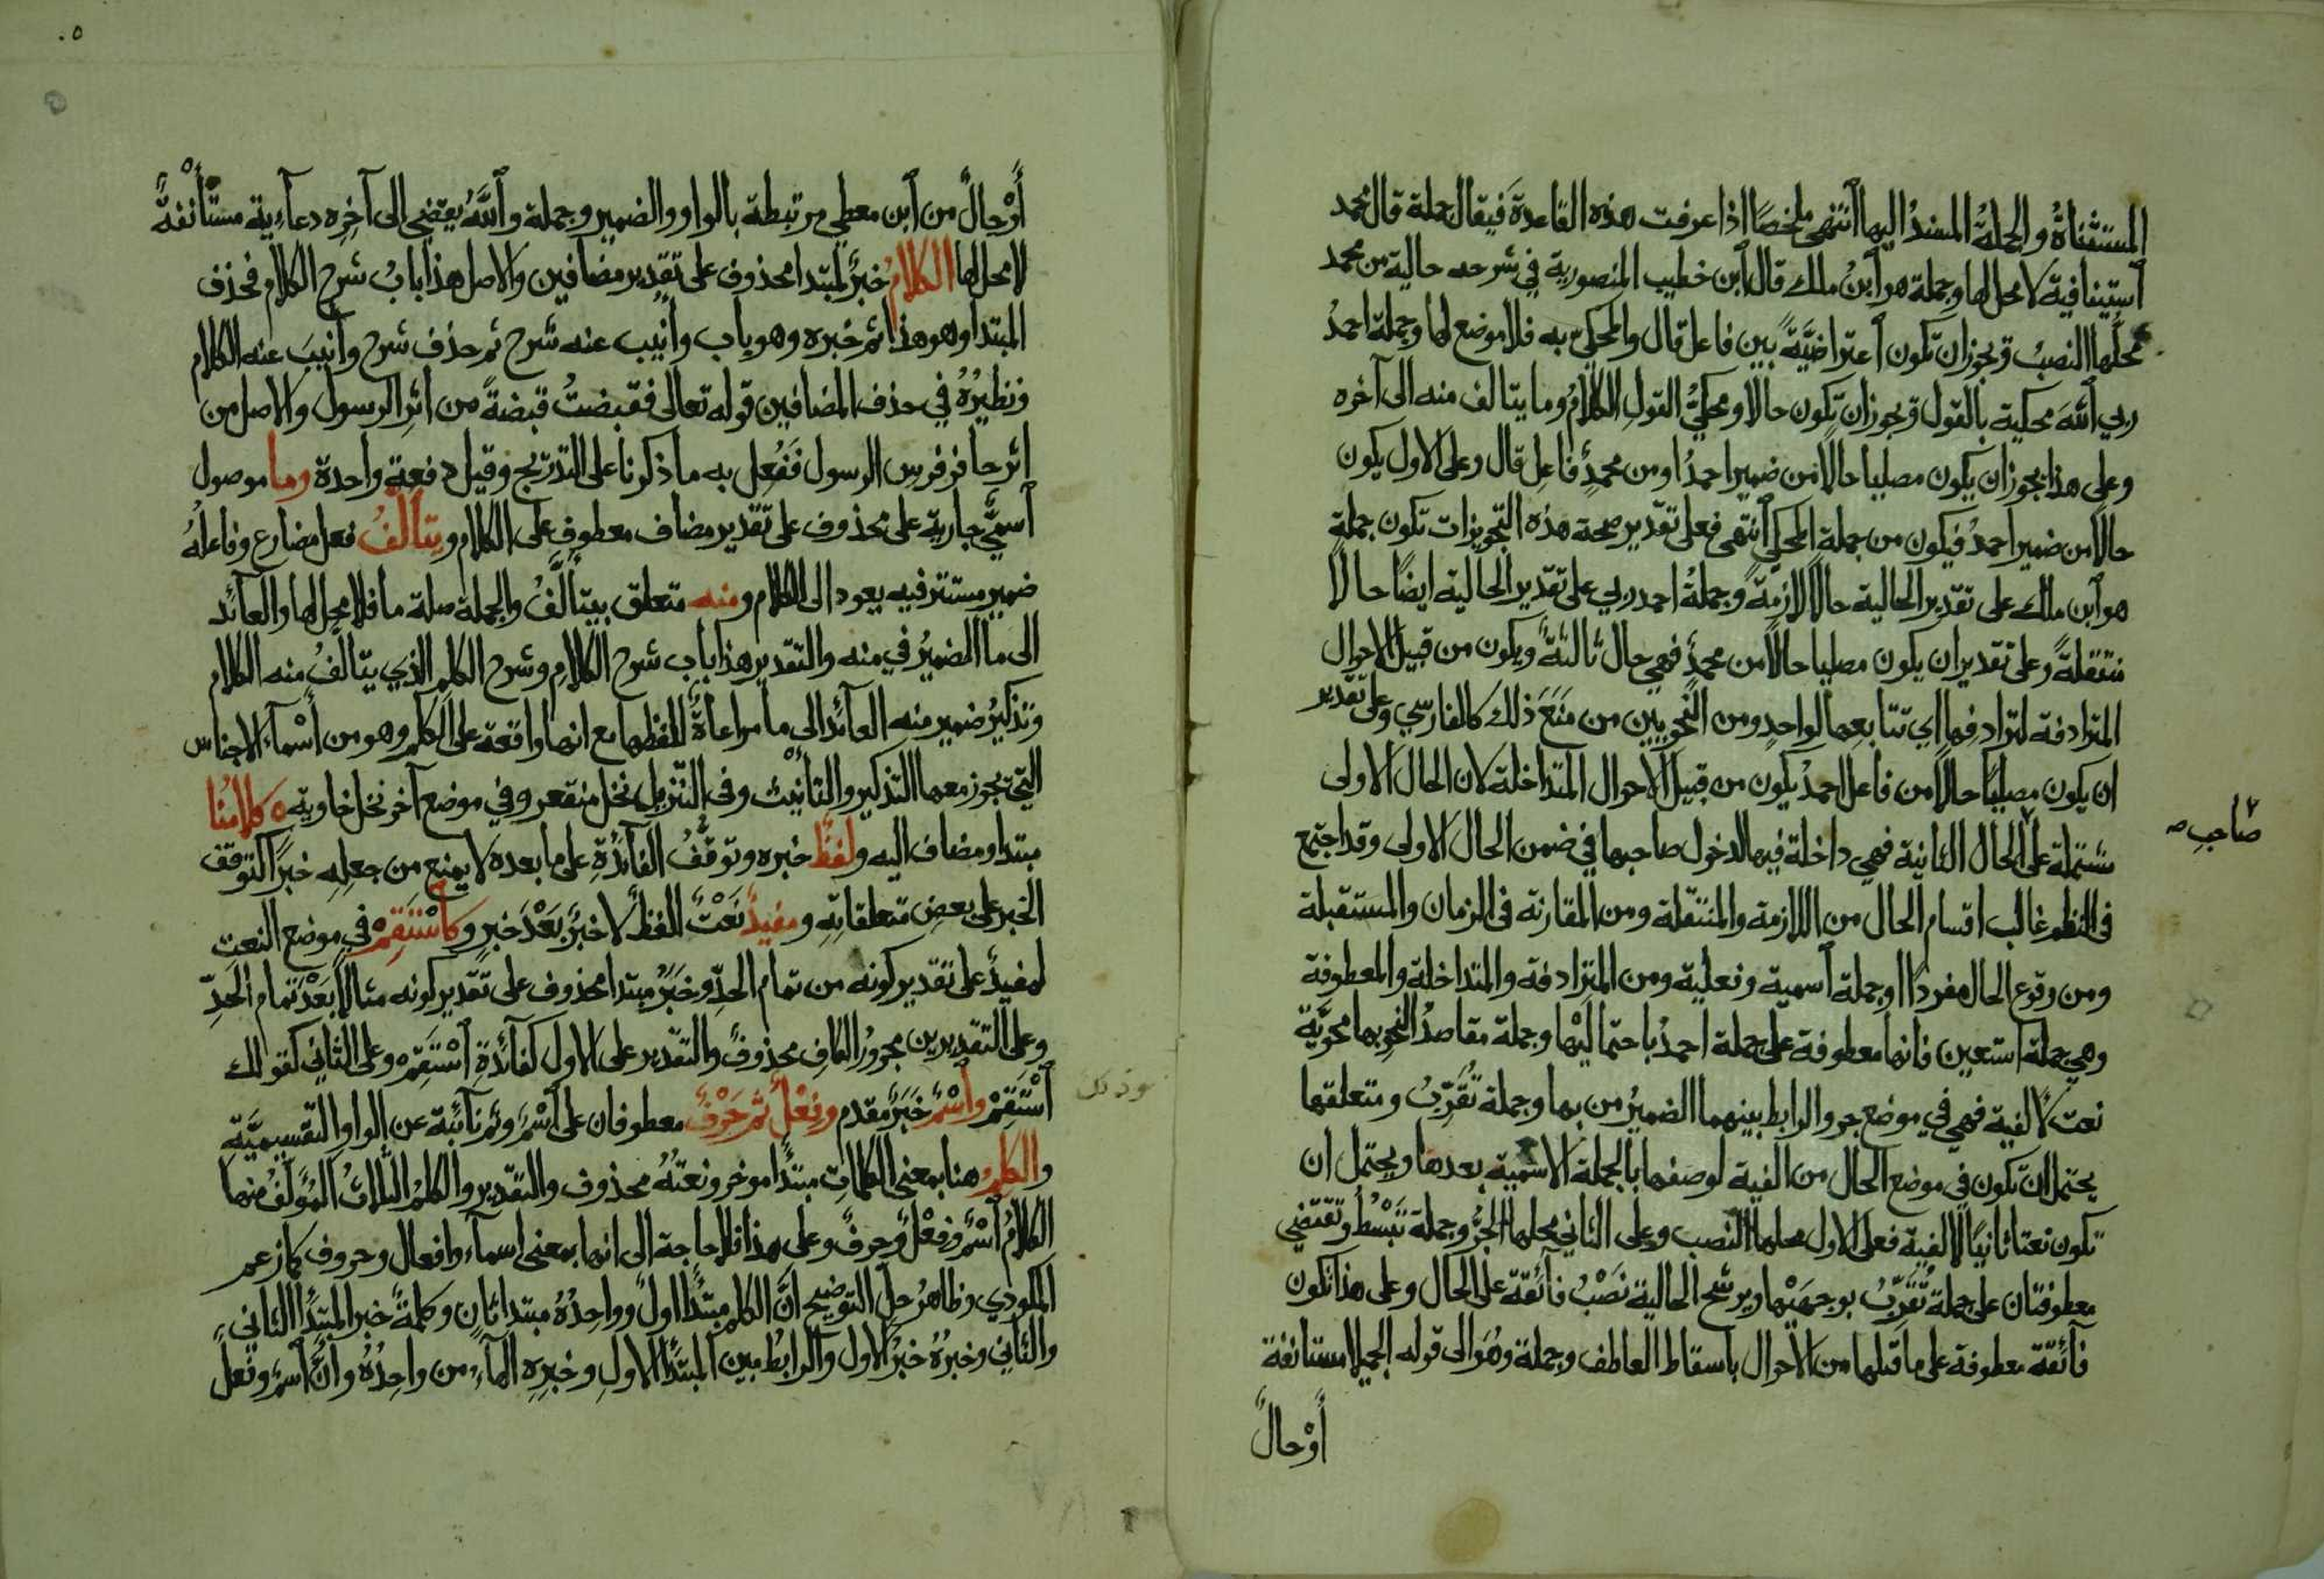 المستثناةُ والجملةُ المسندُ اليها انتهى ملخصًا اذا عرفت هذه القاعدة فيقال جملة قال محمد
استينافية لا محل لها وجملة هو ابنُ ملك قال ابن خطيب المنصورية في شرحه حالية من محمد
محلُّها النصبُ ويجوز ان تكون اعتراضيَّةً بين فاعل قال والمحكيّ به فلا موضع لها وجملة احمدُ
ربي اللهَ محكية بالقول ويجوز ان تكون حالا ومحكيُّ القولِ الكلامُ وما يتالف منه الى آخره
وعلى هذا يجوز ان يكون مصليا حالا من ضمير احمدُ او من محمدٍ فاعِلِ قال وعلى الاول يكون
حالا من ضمير احمدُ فيكون من جملة المحكي انتهى فعلى تقدير صحة هذه التجويزات تكون جملة
هو ابن ملك على تقدير الحالية حالا لازمةً وجملةُ احمد ربي على تقدير الحالية ايضًا حالا
منتقلةً وعلى تقدير ان يكون مصليا حالًا من محمدٍ فهي حال ثالثةٌ ويكون من قبيل الاحوال
المترادفة لترادفها اي تتابعها لواحدٍ ومن النحويين من مَنَعَ ذلك كالفارسي وعلى تقدير
ان يكون مصليًا حالًا من فاعل احمدُ يكون من قبيل الاحوال المتداخلة لان الحال الاولى
مشتملة على الحال الثانية فهي داخلة فيها لدخول صاحبها في ضمن الحال الاولى وقد اجتمع
صَاحبِ صح
فى النظم غالب اقسام الحال من اللازمة والمنتقلة ومن المقارنة فى الزمان والمستقبلة
ومن وقوع الحال مفردًا او جملة اسمية وفعلية ومن المترادفة والمتداخلة والمعطوفة
وهي جملة استعين فانها معطوفة على جملة احمدُ باحتماليْها وجملة مقاصدُ النحو بها محويَّة
نعت لالفية فهي في موضع جر والرابط بينهما الضميرُ من بها وجملة تُقَرِّبُ ومتعلقها
يحتمل ان تكون في موضع الحال من الفية لوصفها بالجملة الاسمية بعدها ويحتمل ان
تكون نعتا ثانيًا لالفية فعلى الاول محلها النصب وعلى الثاني محلها الجرُّ وجملة تَبْسُطُ وتقتضي
معطوفتان على جملة تُقَرِّبُ بوجهَيْها ويرشح الحالية نَصْبُ فآئقةً على الحال وعلى هذا تكون
فآئقة معطوفة على ما قبلها من الاحوال باسقاط العاطف وجملة وهُوَ الى قوله الجميلا مستانفة
أَوْ حالٌ
٥٠
أَوْ حالٌ من ابن معطي مرتبطة بالواو والضمير وجملة واللّٰهُ يقضي الى آخِرِه دعآئية مستأنفةٌ
لا محل لها الكلامُ خبرٌ لمبتدا محذوف على تقدير مضافين والاصل هذا بابُ شرح الكلام فحذف
المبتدا وهو هذا ثم خبره وهو باب وأُنيب عنه شرح ثم حذف شرح وأنيبَ عنه الكلام
ونظيرُهُ في حذف المضافين قوله تعالى فقبضتُ قبضةً من اثرِ الرسول والاصل من
اثر حافر فرس الرسول فَفُعِل به ما ذكرنا على التدريج وقيل دفعة واحدة وما موصول
اسميّ جارية على محذوف على تقدير مضاف معطوف على الكلام ويتألفُ فعل مضارع وفاعلهُ
ضمير مستتر فيه يعود الى الكلام ومنه متعلق بيتألَّفُ والجملة صلة ما فلا محل لها والعآئد
الى ما الضميرُ في منه والتقدير هذا باب شرح الكلامِ وشرح الكلمِ الذي يتالّفُ منه الكلام
وتذكيرُ ضمير منه العآئد الى ما مراعاةً للفظها مع انها واقعة على الكلم وهو من أَسْمآء الاجناس
التي تجوز معها التذكير والتأنيث وفى التنزيل نخل منقعر وفي موضع آخر نخل خاوية ٥ كلامُنا
مبتدا ومضاف اليه ولفظٌ خبره وتوقُّفُ الفآئدةِ على ما بعده لا يمنع من جعلِه خبرًا لتوقف
الخبر على بعض متعلقاتِهِ ومفيدٌ نَعْتٌ للفظٌ لا خبرٌ بَعْدَ خبرٍ وكاسْتَقِمْ في موضع النعت
لمفيدٌ على تقدير كونه من تمام الحدِّ وخَبَرُ مبتدا محذوف على تقدير كونه مثالًا بَعْدَ تمام الحدِّ
وعلى التقديرين مجرورُ الكافِ محذوفٌ والتقدير على الاول كفآئدةِ اسْتَقِمْ وعلى الثاني كقولك
اسْتَقِمْ واسْمٌ خبَرٌ مقدم وفِعْلٌ ثم حَرْفٌ معطوفان على اسْمٌ وثم نآئبة عن الواو التقسيميَّةِ
والكلم هنا بمعنى الكلماتِ مبتدًا موخر ونعتُهُ محذوف والتقدير والكلمُ الثلاثُ المؤلفُ منها
الكلامُ اسْمٌ وفِعْلٌ وحرفٌ وعلى هذا فلا حاجة الى انها بمعنى اسمآء وافعال وحروف كما زعم
المكودي وظاهرُ حلِّ التوضيحِ انَّ الكلم مبتدًا اولٌ وواحِدُهُ مبتدا ثانٍ وكلمةٌ خبر المبتدًا الثاني
والثاني وخبرُهُ خبرُ الاول والرابطُ بين المبتدًا الاولِ وخبرِه الهآءُ من واحِدُهُ وانَّ اسم وفعلٌ